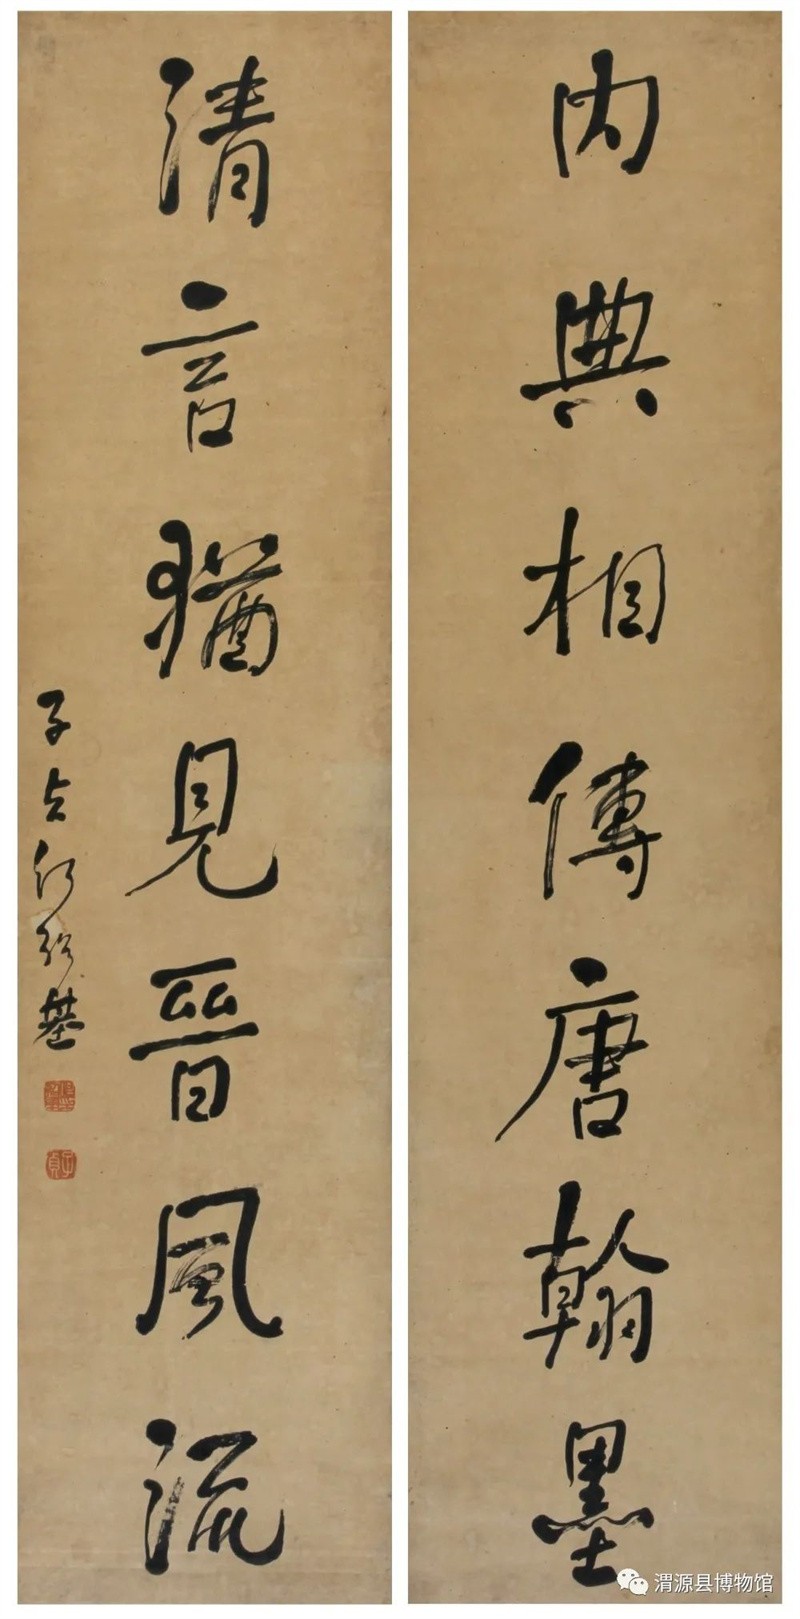 內典相傳唐翰墨
清言猶見晉風流
子貞何紹基
子貞
渭源县博物馆